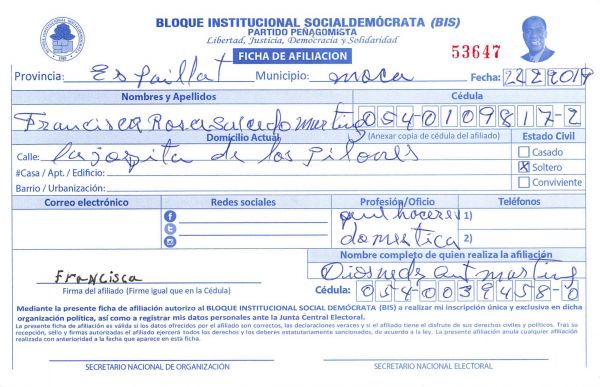 BLOQUE INSTITUCIONAL SOCIALDEMÓCRATA (BIS)
PARTIDO PEÑAGOMISTA
Libertad, Justicia, Democracia y Solidaridad
FICHA DE AFILIACION
53647
Provincia: Espaillat Municipio: moca Fecha: 2222019
Nombres y Apellidos Cédula
Francisca Rosa Salcedo martinez 054-0109817-2
Domicilio Actual (Anexar copia de cédula del afiliado) Estado Civil
Calle: la jopita de los Pilones
Casado
#Casa / Apt. / Edificio: X Soltero
Barrio / Urbanización: Conviviente
Correo electrónico Redes sociales Profesión/Oficio Teléfonos
quehaceres 1)
domestica 2)
Nombre completo de quien realiza la afiliación
Francisca Diomedes ant martinez
Firma del afiliado (Firme igual que en la Cédula) Cédula: 054-0039458-0
Mediante la presente ficha de afiliación autorizo al BLOQUE INSTITUCIONAL SOCIAL DEMÓCRATA (BIS) a realizar mi inscripción única y exclusiva en dicha
organización política, así como a registrar mis datos personales ante la Junta Central Electoral.
La presente ficha de afiliación es válida si los datos ofrecidos por el afiliado son correctos, las declaraciones veraces y si el afiliado tiene el disfrute de sus derechos civiles y políticos. Tras su
recepción, sello y firmas autorizadas el afiliado ejercerá todos los derechos y los deberes estatutariamente sancionados, de acuerdo a la ley. La presente afiliación anula cualquier afiliación
realizada con anterioridad a la fecha que aparece en esta ficha.
SECRETARIO NACIONAL DE ORGANIZACIÓN SECRETARIO NACIONAL ELECTORAL